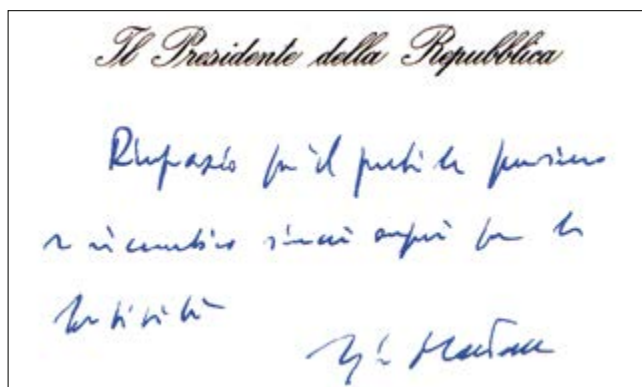 Il Presidente della Repubblica
Ringrazio per il gentile pensiero
e ricambio sinceri auguri per le
festività